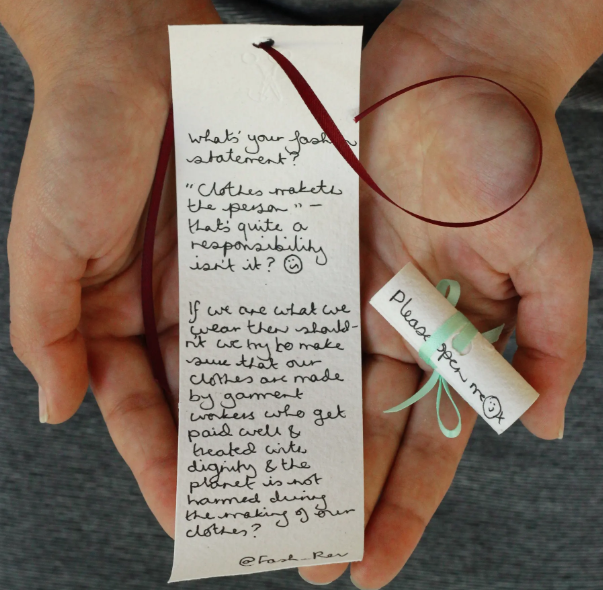 what's your fashion
statement?
"Clothes maketh
the person" –
that's quite a
responsibility
isn't it? ☺
If we are what we
wear then should-
n't we try to make
sure that our
clothes are made
by garment
workers who get
paid well &
treated with
dignity & the
planet is not
harmed during
the making of our
clothes?
@Fash_Rev
Please open me ☺ x